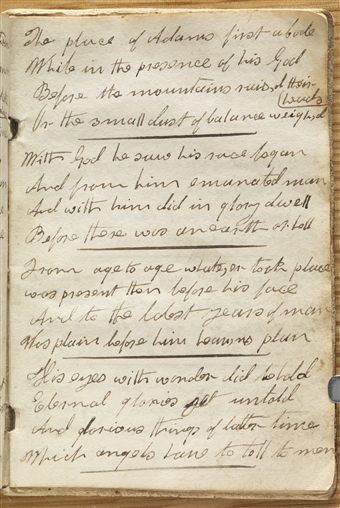 The place of Adams first abode
While in the presence of his God
Before the mountains raisd their
heads
Or the small dust of balance weighd
With God he saw his race began
And from him emanated man
And with him did in glory dwell
Before there was an earth or hell
From age to age whatever took place
was present then before his face
And to the latest years of man
Was plain before him heavens plan
His eyes with wonder did behold
Eternal glories yet untold
And glorious things of latter time
Which angels have to tell to men